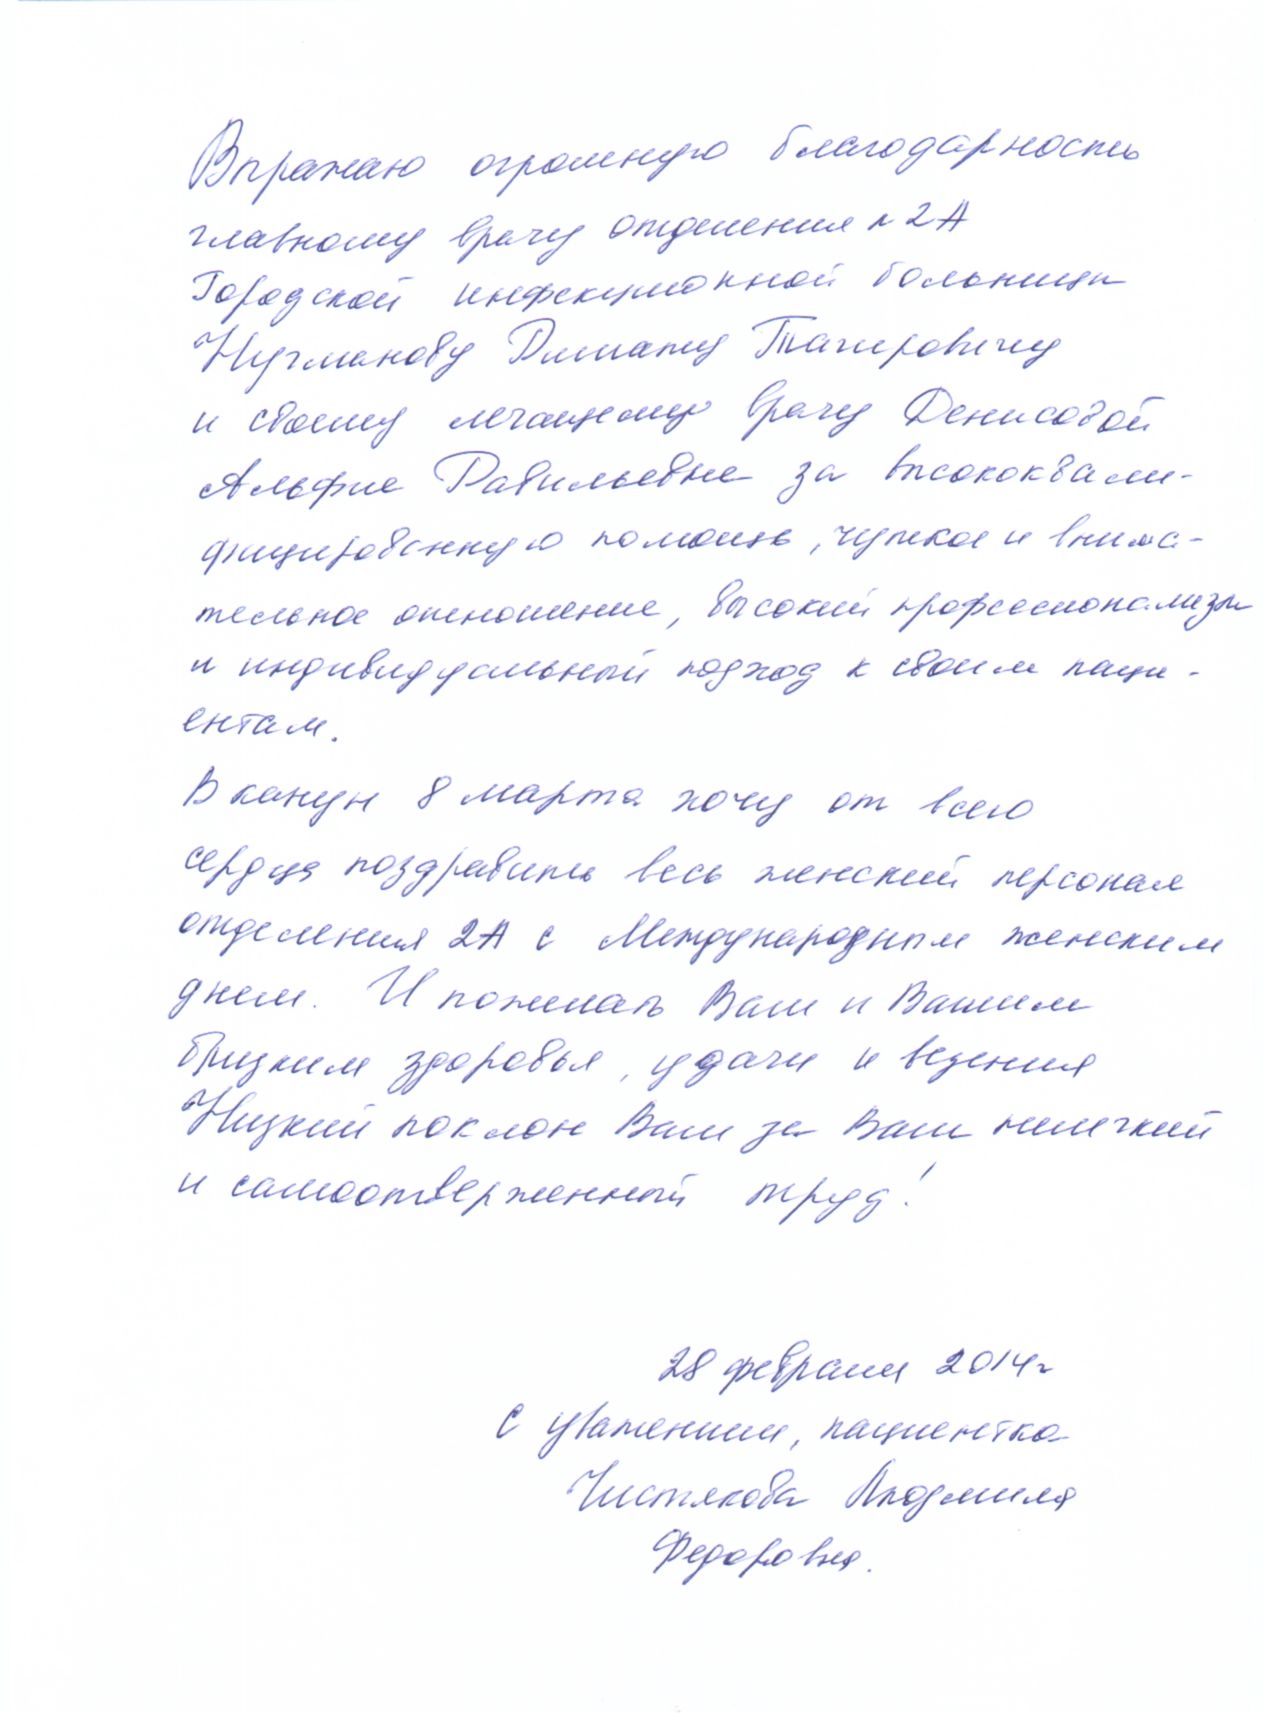 Выражаю огромную благодарность
главному врачу отделения н 2А
Городской инфекционной больницы
Нугманову Ринату Тагировичу
и своему лечащему врачу Денисовой
Альфие Равильевне за высококвали-
фицированную помощь, чуткое и внима-
тельное отношение, высокий профессионализм
и индивидуальный подход к своим паци-
ентам.
В канун 8 марта хочу от всего
сердца поздравить весь женский персонал
отделения 2А с Международным женским
днем. И пожелать Вам и Вашим
близким здоровья, удачи и везения
Низкий поклон Вам за Ваш нелегкий
и самоотверженный труд!
28 февраля 2014г
С уважением, пациентка
Чистякова Людмила
Федоровна.